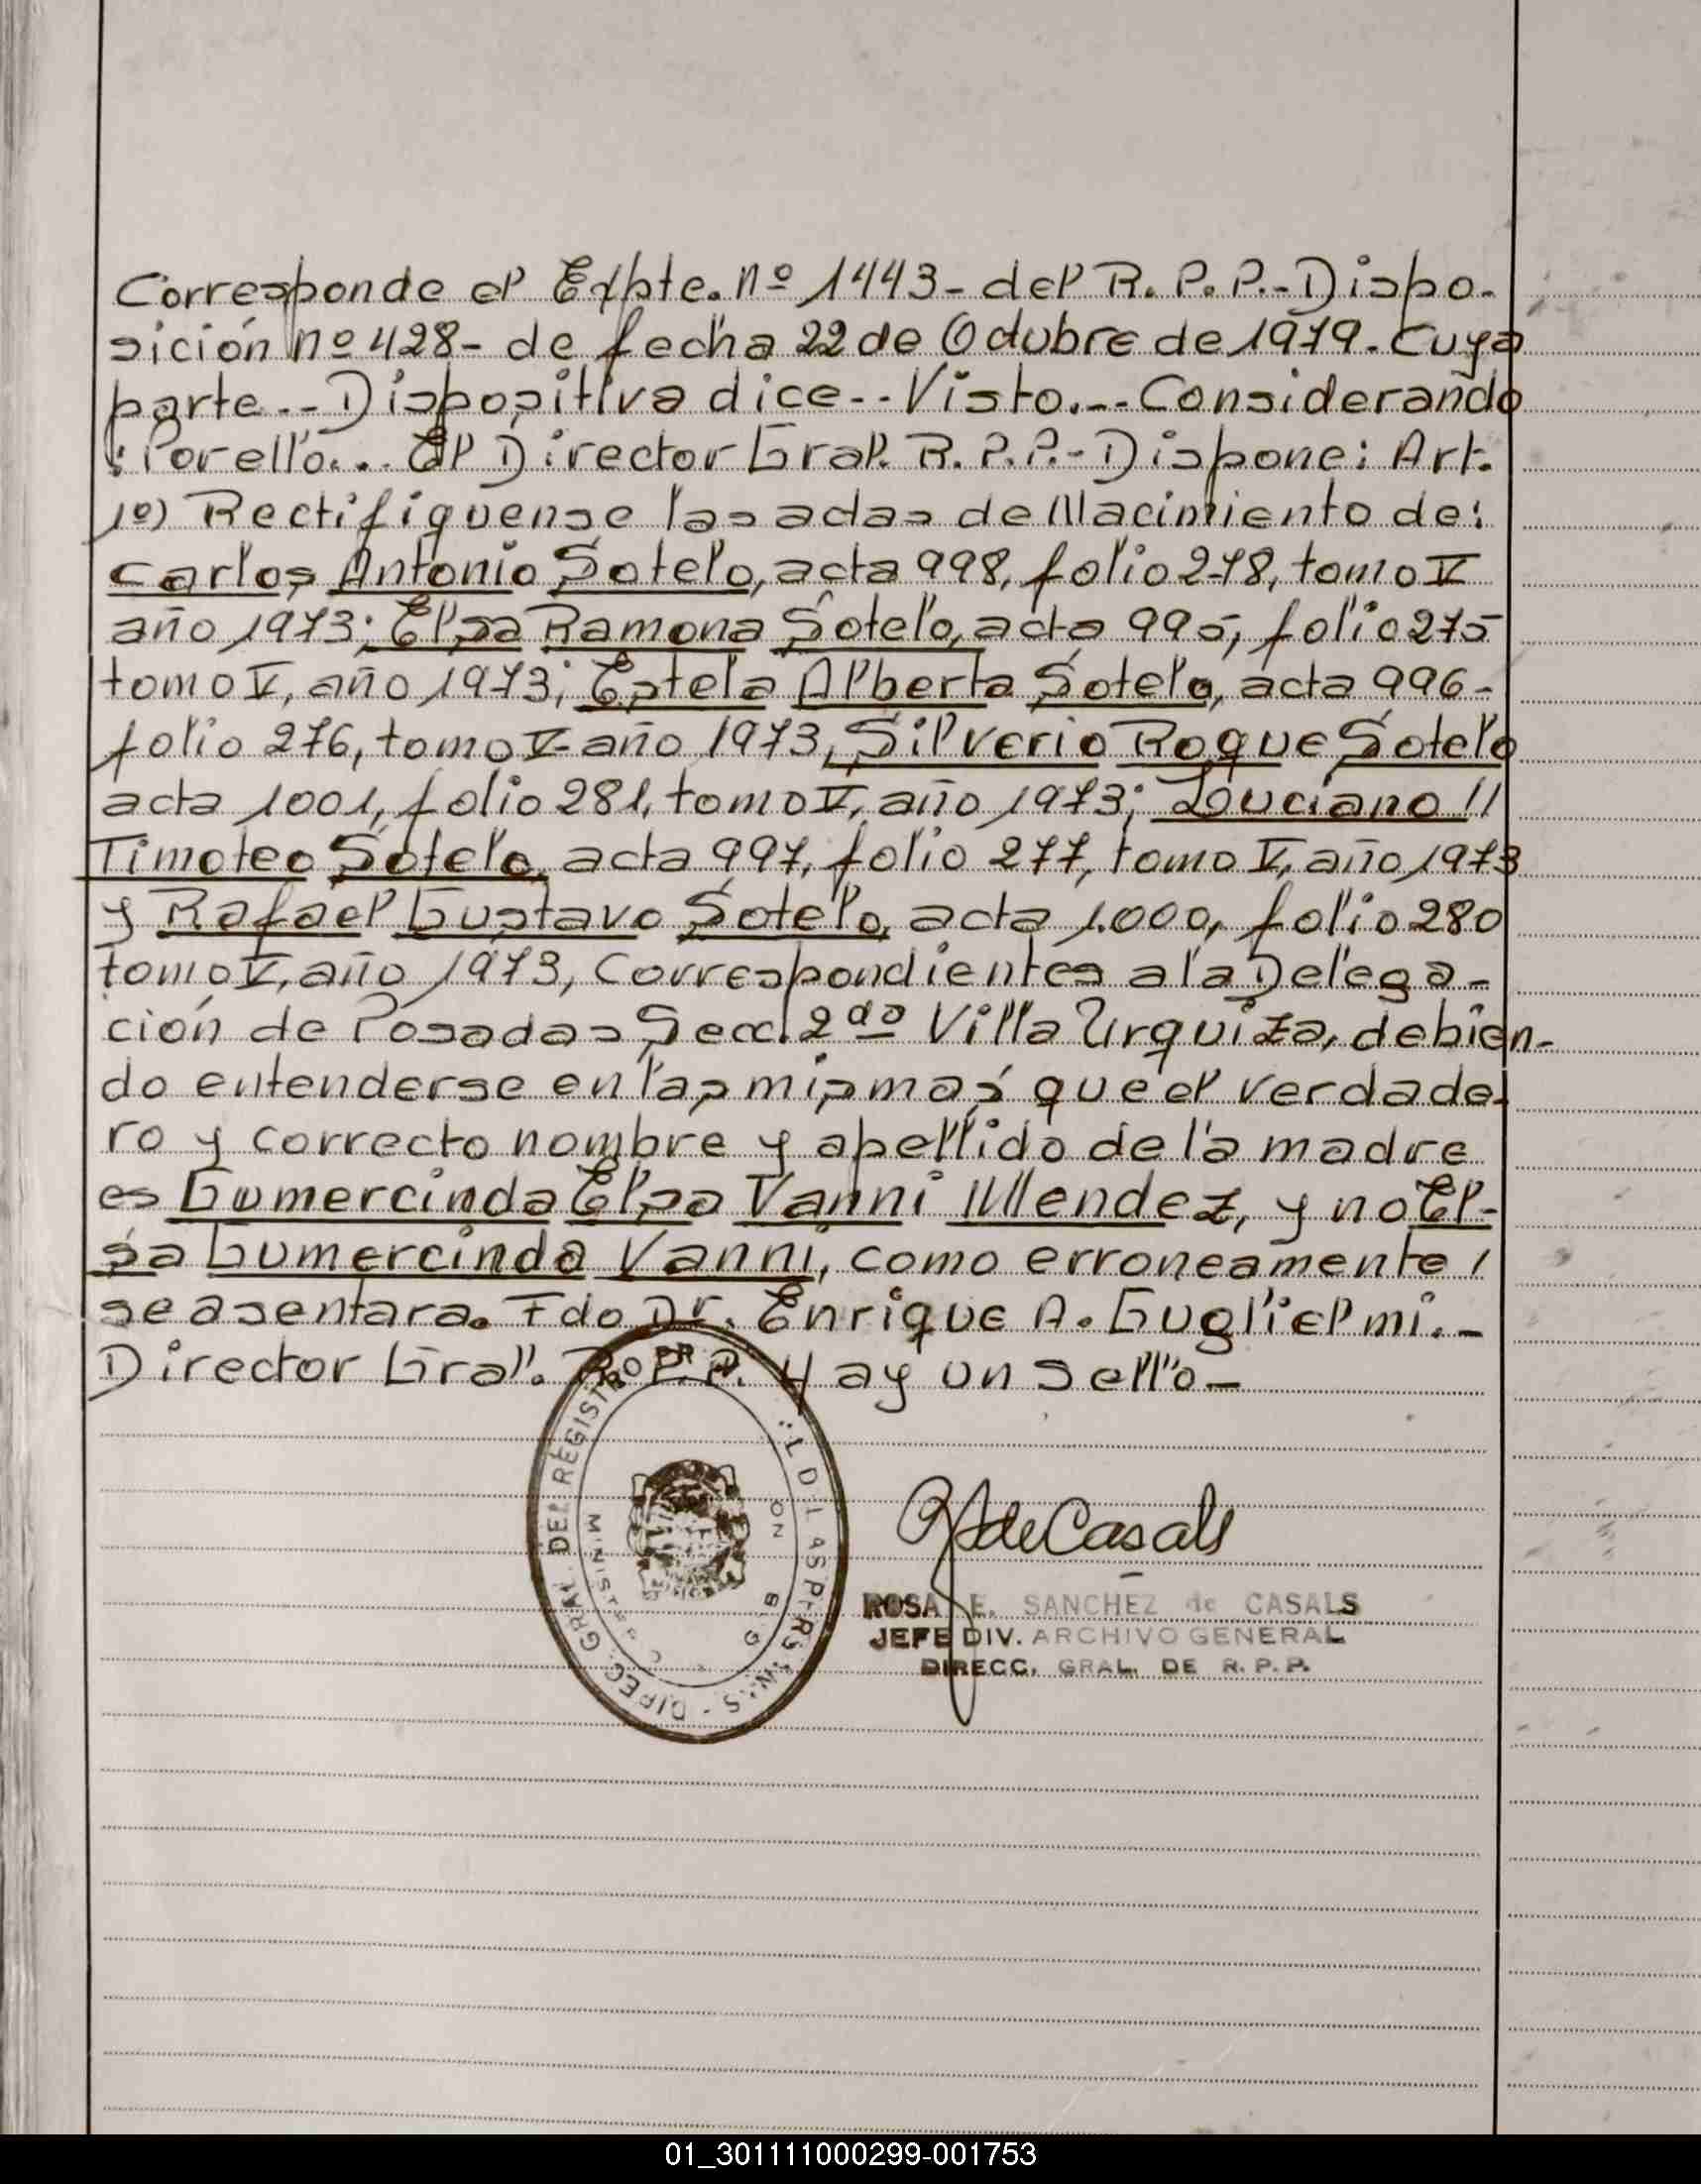 Corresponde al Expte. nº 1443- del R. P. P.- Dispo-
sición nº 428- de fecha 22 de Octubre de 1979. Cuya
parte.-- Dispositiva dice.-- Visto.--- Considerando
: Por ello... El Director Gral. R. P. P.- Dispone: Art.
1º) Rectifíquense las actas de Nacimiento de:
Carlos Antonio Sotelo, acta 998, folio 278, tomo V
año 1973; Elsa Ramona Sotelo, acta 995, folio 275
tomo V, año 1973; Estela Alberta Sotelo, acta 996-
folio 276, tomo V- año 1973, Silverio Roque Sotelo
acta 1001, folio 281, tomo V, año 1973; Luciano //
Timoteo Sotelo, acta 997, folio 277, tomo V, año 1973
y Rafael Gustavo Sotelo, acta 1.000, folio 280
tomo V, año 1973, Correspondientes a la Delega-
ción de Posadas Secc. 2da Villa Urquiza, debien-
do entenderse en las mismas que el verdade-
ro y correcto nombre y apellido de la madre
es Gumercinda Elsa Vanni Mendez, y no El-
sa Gumercinda Vanni, como erroneamente /
se asentara. Fdo Dr. Enrique A. Guglielmi.-
Director Gral. R. P. P. Hay un sello-
DIREC. GRAL. DEL REGISTRO
deCasals
ROSA E. SANCHEZ de CASALS
JEFE DIV. ARCHIVO GENERAL
DIRECC. GRAL. DE R. P. P.
01_301111000299-001753